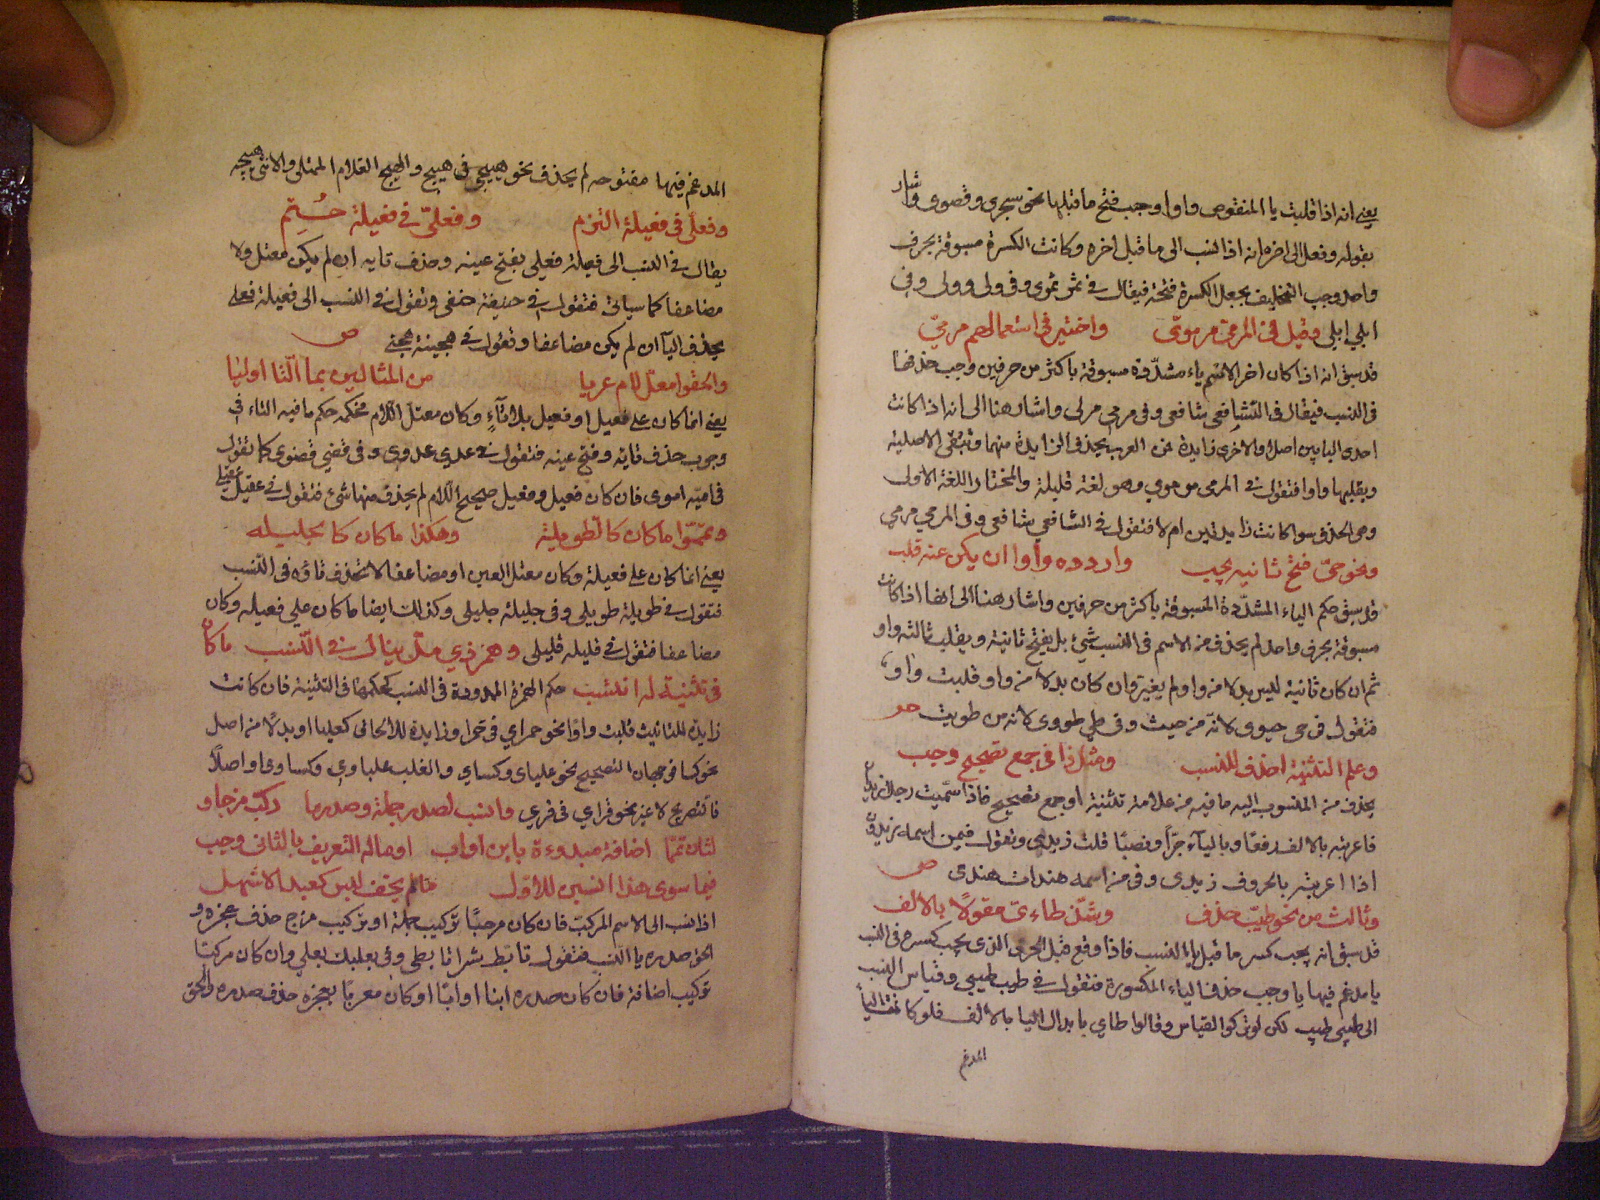 يعني انه اذا قلبت يا المنقوص واوا وجب فتح ما قبلها نحو شجوى وقضوى واشار
بقوله وفعل الى اخره انه اذا نسب الى ما قبل اخره وكانت الكسرة مسبوقة بحرف
واحد وجب التخفيف بجعل الكسرة فتحة فيقال في نمر نموى وفي ولى وولى وفى
ابلي ابلي وقيل في المرمى مرموى واختير في استعمالهم مرمى
قد سبق انه اذا كان اخر الاسم ياء مشددة مسبوقة باكثر من حرفين وجب حذفها
في النسب فيقال في الشافعي شافعي وفي مرمي مرمى واشار هنا الى انه اذا كانت
احدى اليايين اصلا والاخرى زايدة فمن العرب يحذف الزايدة منهما وتبقى الاصلية
ويقلبها واوا فتقول في المرمى مرموي وهو لغة قليلة والمختار اللغة الاولى
وهي الحذف سوا كانت زايدتين ام لا فتقول في الشافعي شافعي وفي المرمي مرمى
ونحو حي فتح ثانيه يجب واردده واوا ان يكن عنه قلب
قد سبق حكم الياء المشددة المسبوقة باكثر من حرفين واشار هنا الى انها اذا كانت
مسبوقة بحرف واحد لم يحذف من الاسم في النسب شيء بل يفتح ثانيه ويقلب ثالثه واو
ثم ان كان ثانيه ليس بدلا من واو لم يغير وان كان بدلا من واو قلبت واو
فتقول في حي حيوى لانه من حييت وفي طي طووى لانه من طويت
وعلم التثنية احذف للنسب ومثل ذا في جمع تصحيح وجب
يحذف من المنسوب اليه ما فيه من علامة تثنية او جمع تصحيح فاذا سميت رجلا زيدان
فاعربته بالالف رفعا وبالياء جرا ونصبا قلت زيدي وتقول فيمن اسمه زيدون
اذا اعربته بالحروف زيدى وفي من اسمه هندات هندى ص
وثالث من نحو طيب حذف وشذ طاءى مقولا بالالف
قد سبق انه يجب كسر ما قبل يا النسب فاذا وقع قبل الحرف الذى يجب كسره في النسب
يا مدغم فيها يا وجب حذف الياء المكسورة فتقول في طيب طيبي وقياس النسب
الى طيى طيبى لكن تركوا القياس وقالوا طاي بابدال اليا بالالف فلو كانت اليا
المدغم
المدغم فيها مفتوحه لم يحذف نحو هبيخى في هبيخ والهبيخ الغلام الممتلى والانثى هبيخه
وفعلى في فعيلة التزم وفعلى في فعيلة حتم
يقال في النسب الى فعيلة فعلى بفتح عينه وحذف يايه ان لم يكن معتل ولا
مضاعفا كما سياتى فتقول في حنيفة حنفى وتقول في النسب الى فعيلة فعلى
بحذف اليا ان لم يكن مضاعفا وتقول في جهينة جهنى ص
والحقوا معل لام عريا من المثالين بما التا اوليا
يعني انما كان على فعيل او فعيل بلا تاء وكان معتل اللام فحكمه حكم ما فيه التاء في
وجوب حذف يايه وفتح عينه فتقول في عدي عدوى وفي قصي قصوى كما تقول
في اميه اموى فان كان فعيل وفعيل صحيح اللام لم يحذف منهما شيء فتقول في عقيل عقيلي
وتمموا ما كان كالطويلة وهكذا ما كان كالجليله
يعني انما كان على فعيلة وكان معتل العين او مضاعفا لا تحذف ياؤه في النسب
فتقول في طويلة طويلي وفي جليلة جليلي وكذلك ايضا ما كان على فعيله وكان
مضاعفا فتقول في قليله قليلى وهمز ذي مد ينال في النسب ما كان
في تثنية له انتسب حكم الهمزة الممدودة في النسب كحكمها في التثنية فان كانت
زايدة للتانيث قلبت واوا نحو حمراوي في حمرا وزايدة للالحاق كعلبا او بدلا من اصل
نحو كسا فوجهان التصحيح نحو علباى وكساي والقلب علباوى وكساوى او اصلا
فالتصحيح لا غير نحو قراي في قرى وانسب لصدر جملة وصدر ما ركب مزجا و
لثان تمما اضافة مبدوءة بابن اواب او ماله التعريف بالثاني وجب
فيما سوى هذا انسبن للاول ما لم يخف لبس كعبد الاشهل
اذا نسب الى الاسم المركب فان كان مركبا تركيب جملة او تركيب مزج حذف عجزه و
الحق صدره يا النسب فتقول في تابط شرا تابطى وفي بعلبك بعلي وان كان مركبا
تركيب اضافة فان كان صدره ابنا او ابا او كان معرفا بعجزه حذف صدره والحق